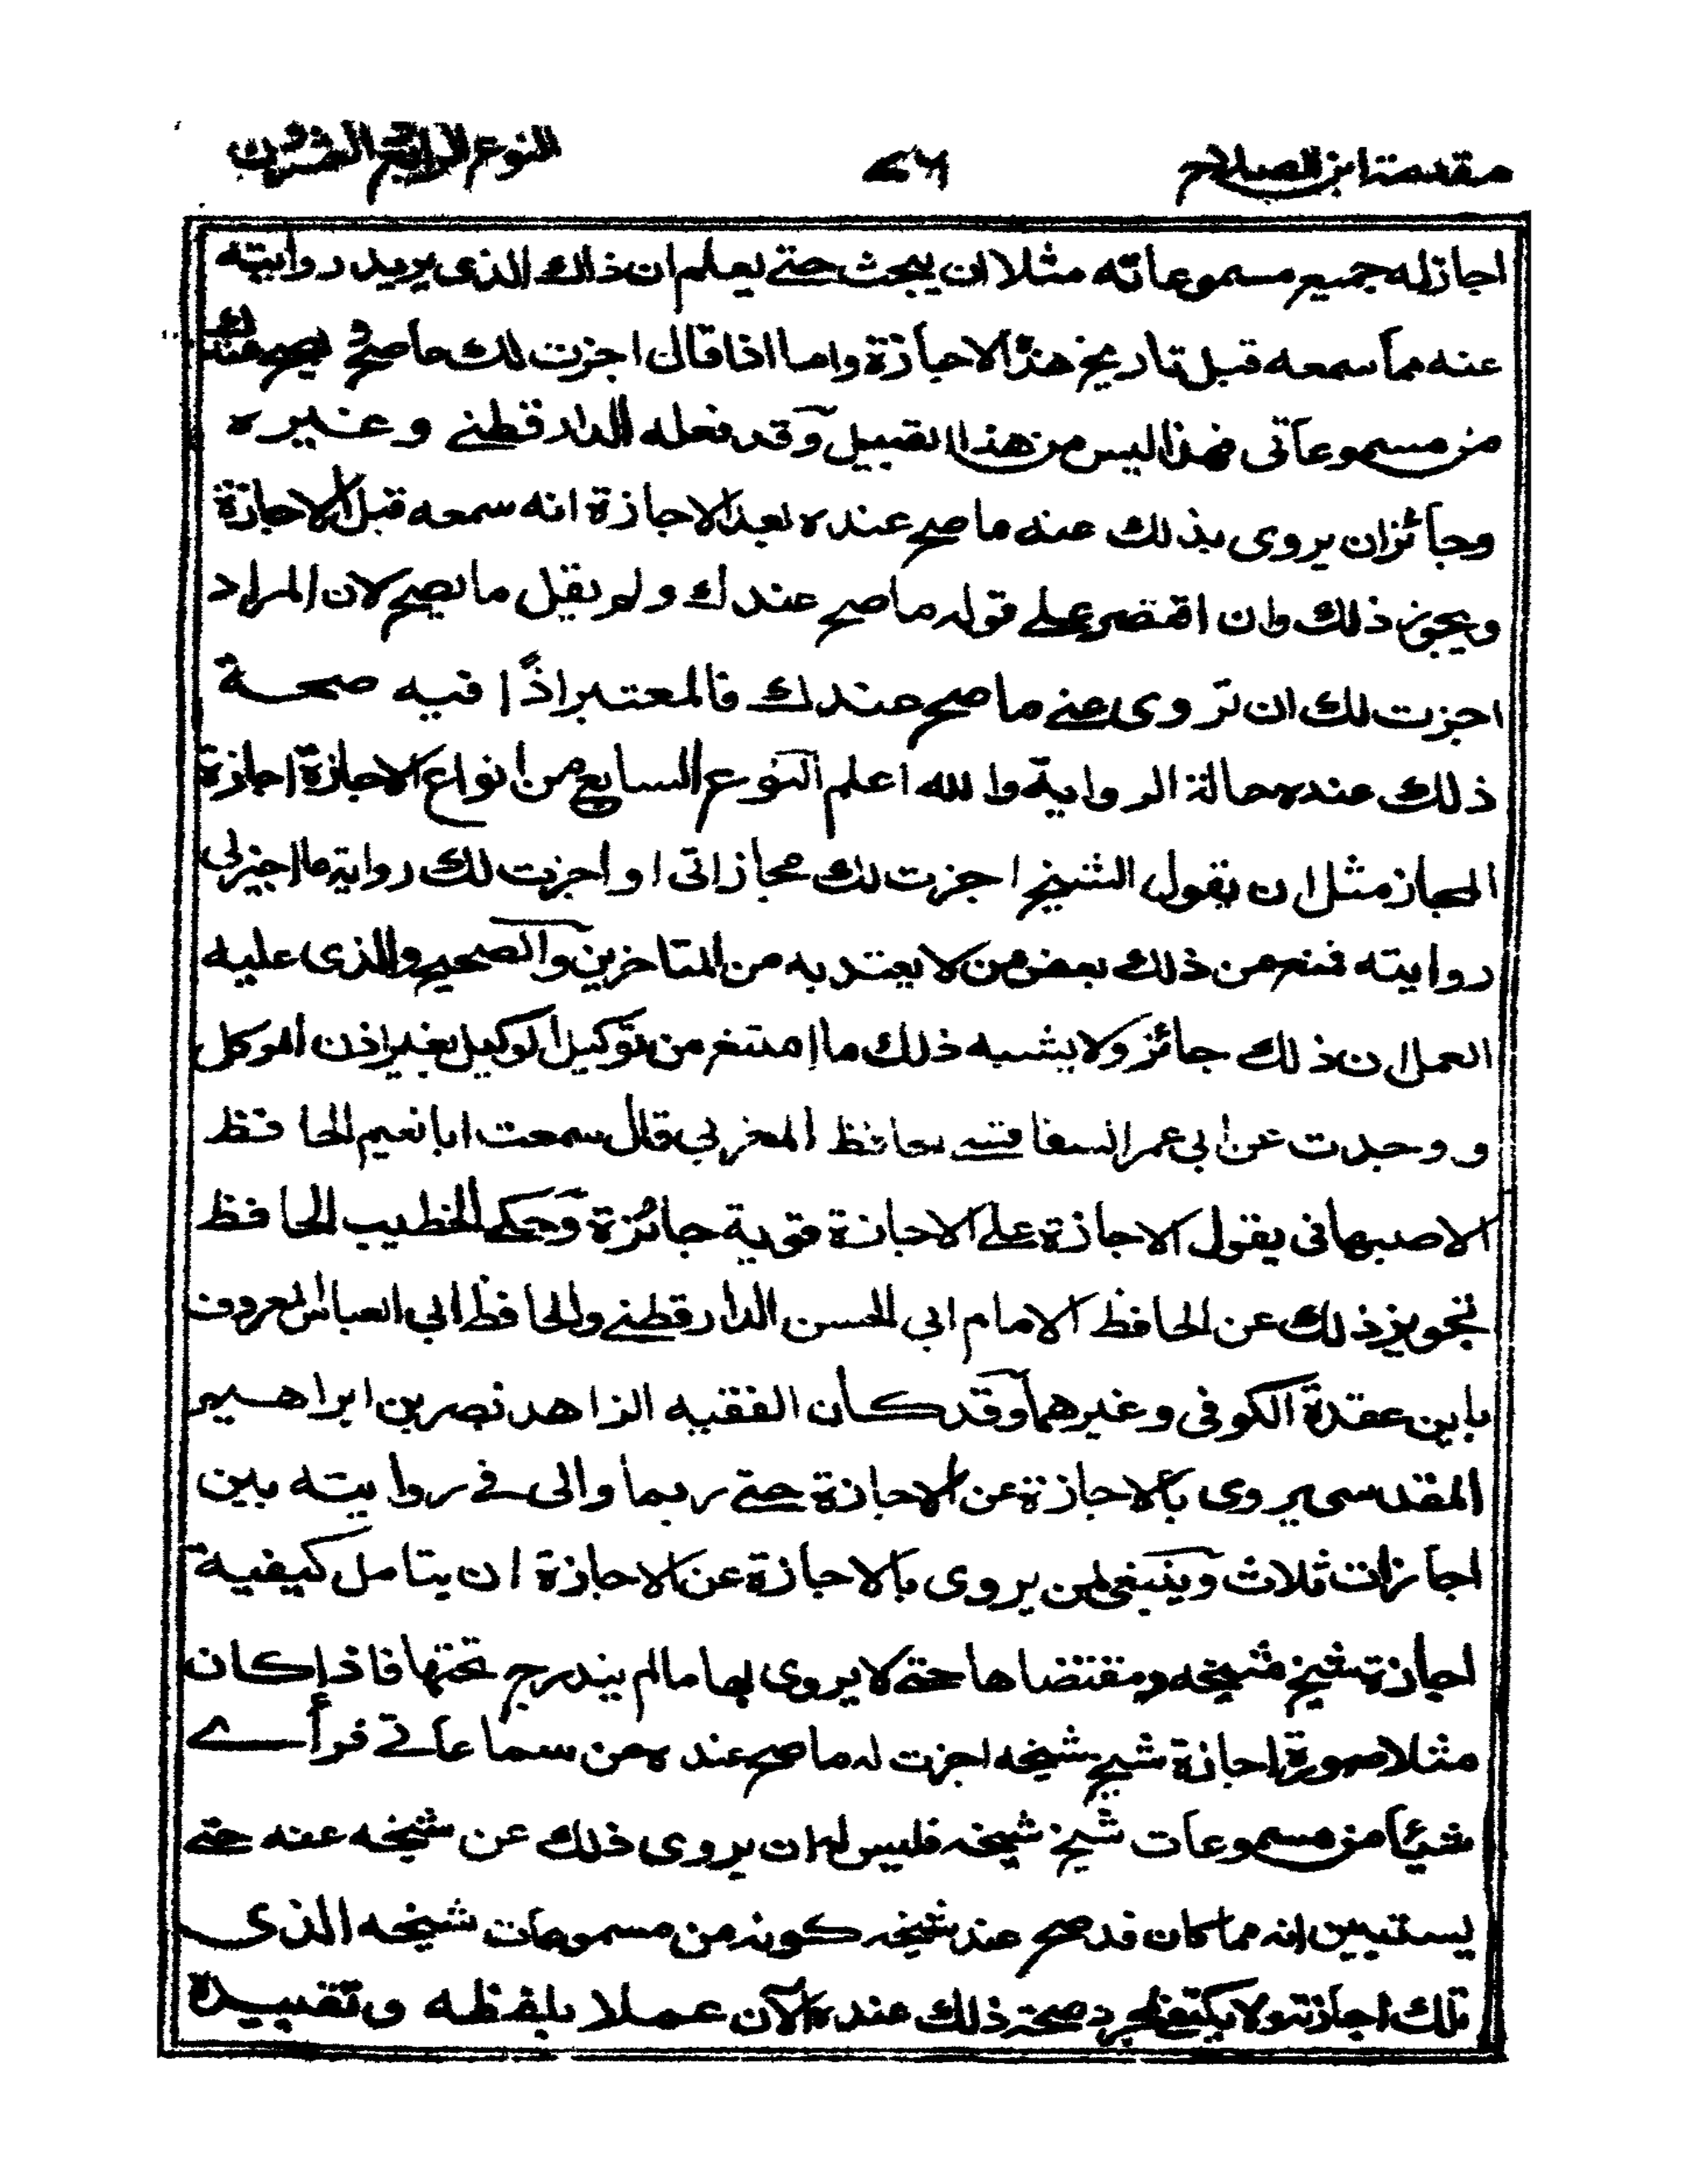 مقدمة ابن الصلاح ٧٦ النوع الرابع والعشرون
اجاز له جميع مسموعاته مثلا ان يبحث حتى يعلم ان ذلك الذى يريد روايته
عنه مما سمعه قبل تاريخ هذه الاجازة واما اذا قال اجزت لك ما صح ويصح عندك
من مسموعاتى فهذا ليس من هذا القبيل وقد فعله الدارقطنى وغيره
وجائز ان يروى بذلك عنه ما صح عنده بعد الاجازة انه سمعه قبل الاجازة
ويجوز ذلك وان اقتصر على قوله ما صح عندك ولم يقل ما يصح لان المراد
اجزت لك ان تروى عنى ما صح عندك فالمعتبر اذًا فيه صحة
ذلك عنده حالة الرواية والله اعلم النوع السابع من انواع الاجازة اجازة
المجاز مثل ان يقول الشيخ اجزت لك مجازاتى او اجزت لك رواية ما اجيز لى
روايته فمنع من ذلك بعض من لا يعتد به من المتاخرين والصحيح والذى عليه
العمل ان ذلك جائز ولا يشبه ذلك ما امتنع من توكيل الوكيل بغير اذن الموكل
ووجدت عن ابى عمر السفاقسى حافظ المغرب قال سمعت ابا نعيم الحافظ
الاصبهانى يقول الاجازة على الاجازة قوية جائزة وحكى الخطيب الحافظ
تجويز ذلك عن الحافظ الامام ابى الحسن الدارقطنى والحافظ ابى العباس المعروف
بابن عقدة الكوفى وغيرهما وقد كان الفقيه الزاهد نصر بن ابراهيم
المقدسى يروى بالاجازة عن الاجازة حتى ربما والى فى روايته بين
اجازات ثلاث وينبغى لمن يروى بالاجازة عن الاجازة ان يتامل كيفية
اجازة شيخ شيخه ومقتضاها حتى لا يروى بها ما لم يندرج تحتها فاذا كان
مثلا صورة اجازة شيخ شيخه اجزت له ما صح عنده من سماعاتى فرأى
شيئا من مسموعات شيخ شيخه فليس له ان يروى ذلك عن شيخه عنه حتى
يستبين انه مما كان قد صح عند شيخه كونه من مسموعات شيخه الذى
تلك اجازته ولا يكتفى بمجرد صحة ذلك عنده الآن عملا بلفظه وتقييده